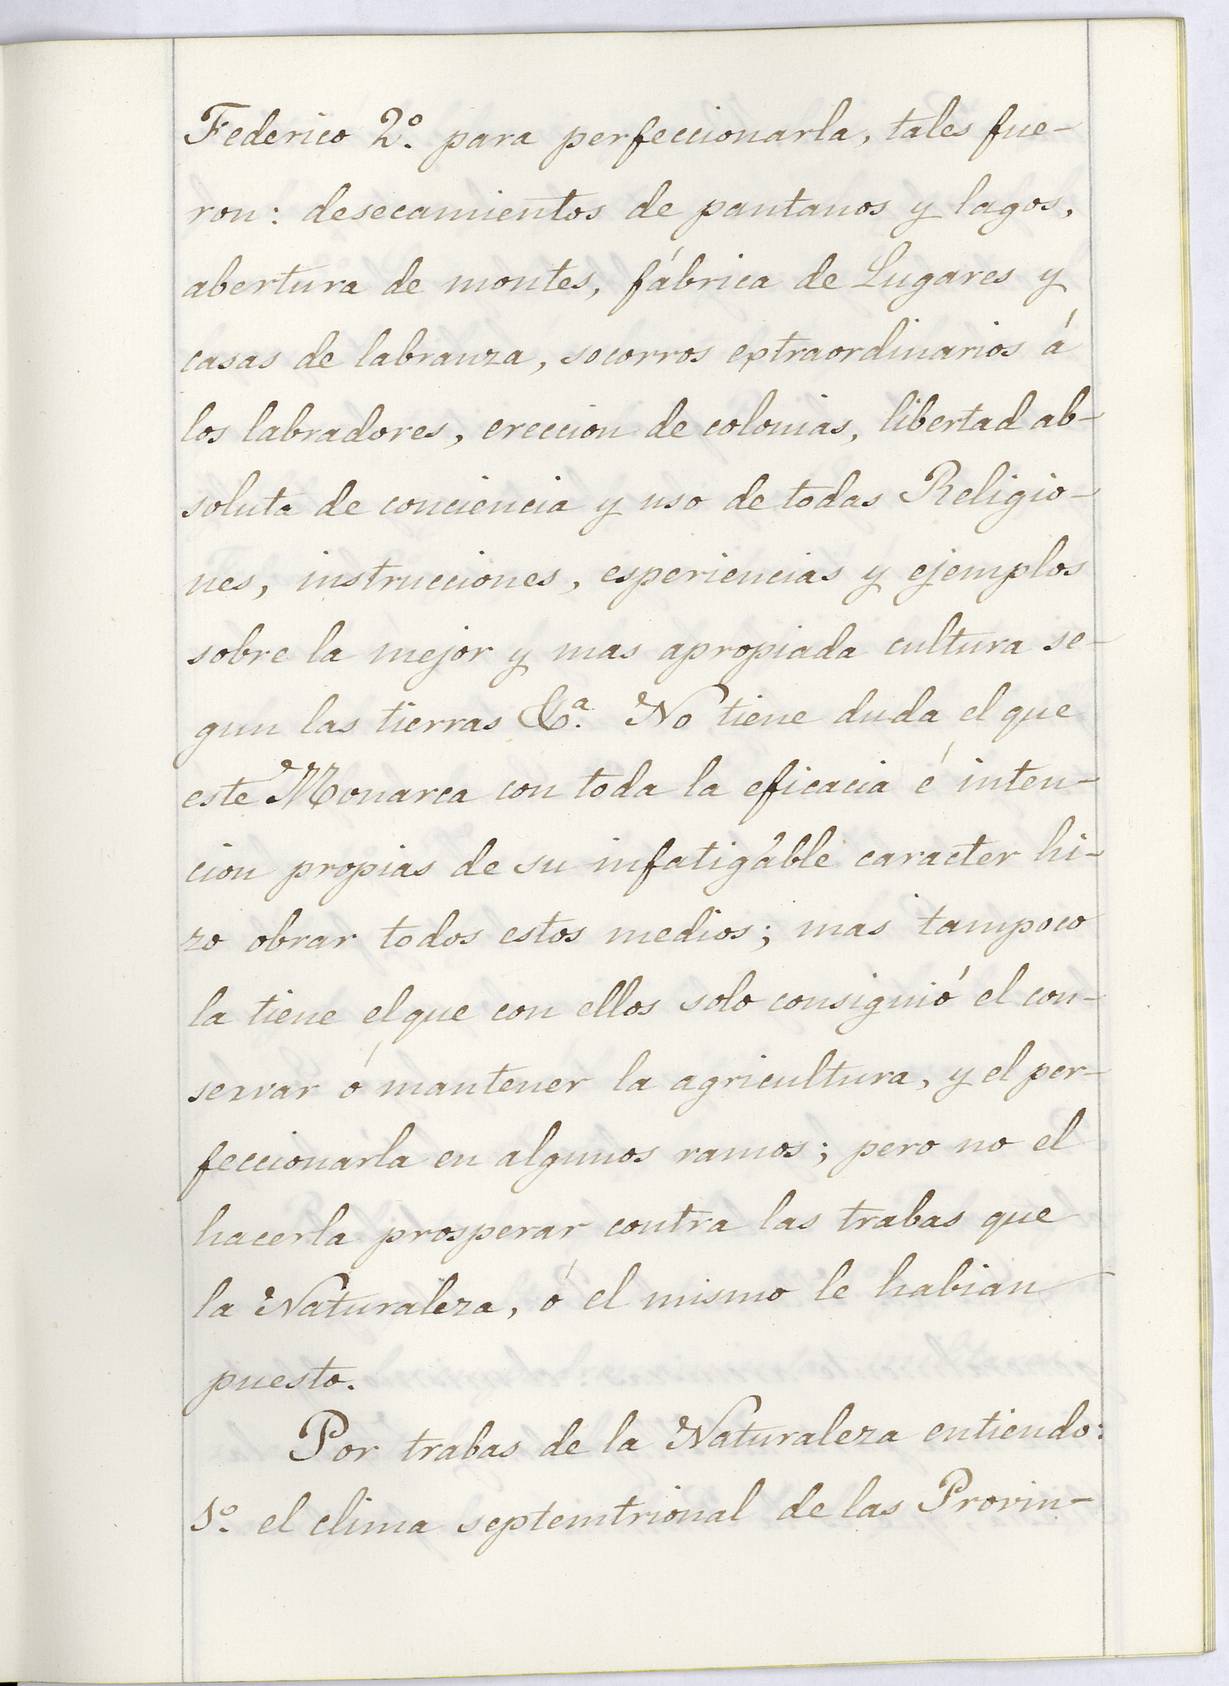 Federico 2º. para perfeccionarla, tales fue-
ron: desecamientos de pantanos y lagos,
abertura de montes, fábrica de Lugares y
casas de labranza, socorros extraordinarios á
los labradores, ereccion de colonias, libertad ab-
soluta de conciencia y uso de todas Religio-
nes, instrucciones, esperiencias y ejemplos
sobre la mejor y mas apropiada cultura se-
gun las tierras &ª. No tiene duda el que
este Monarca con toda la eficacia é inten-
cion propias de su infatigable caracter hi-
zo obrar todos estos medios; mas tampoco
la tiene el que con ellos solo consiguió el con-
servar ó mantener la agricultura, y el per-
feccionarla en algunos ramos; pero no el
hacerla prosperar contra las trabas que
la Naturaleza, ó el mismo le habian
puesto.
Por trabas de la Naturaleza entiendo:
1º. el clima septemtrional de las Provin-